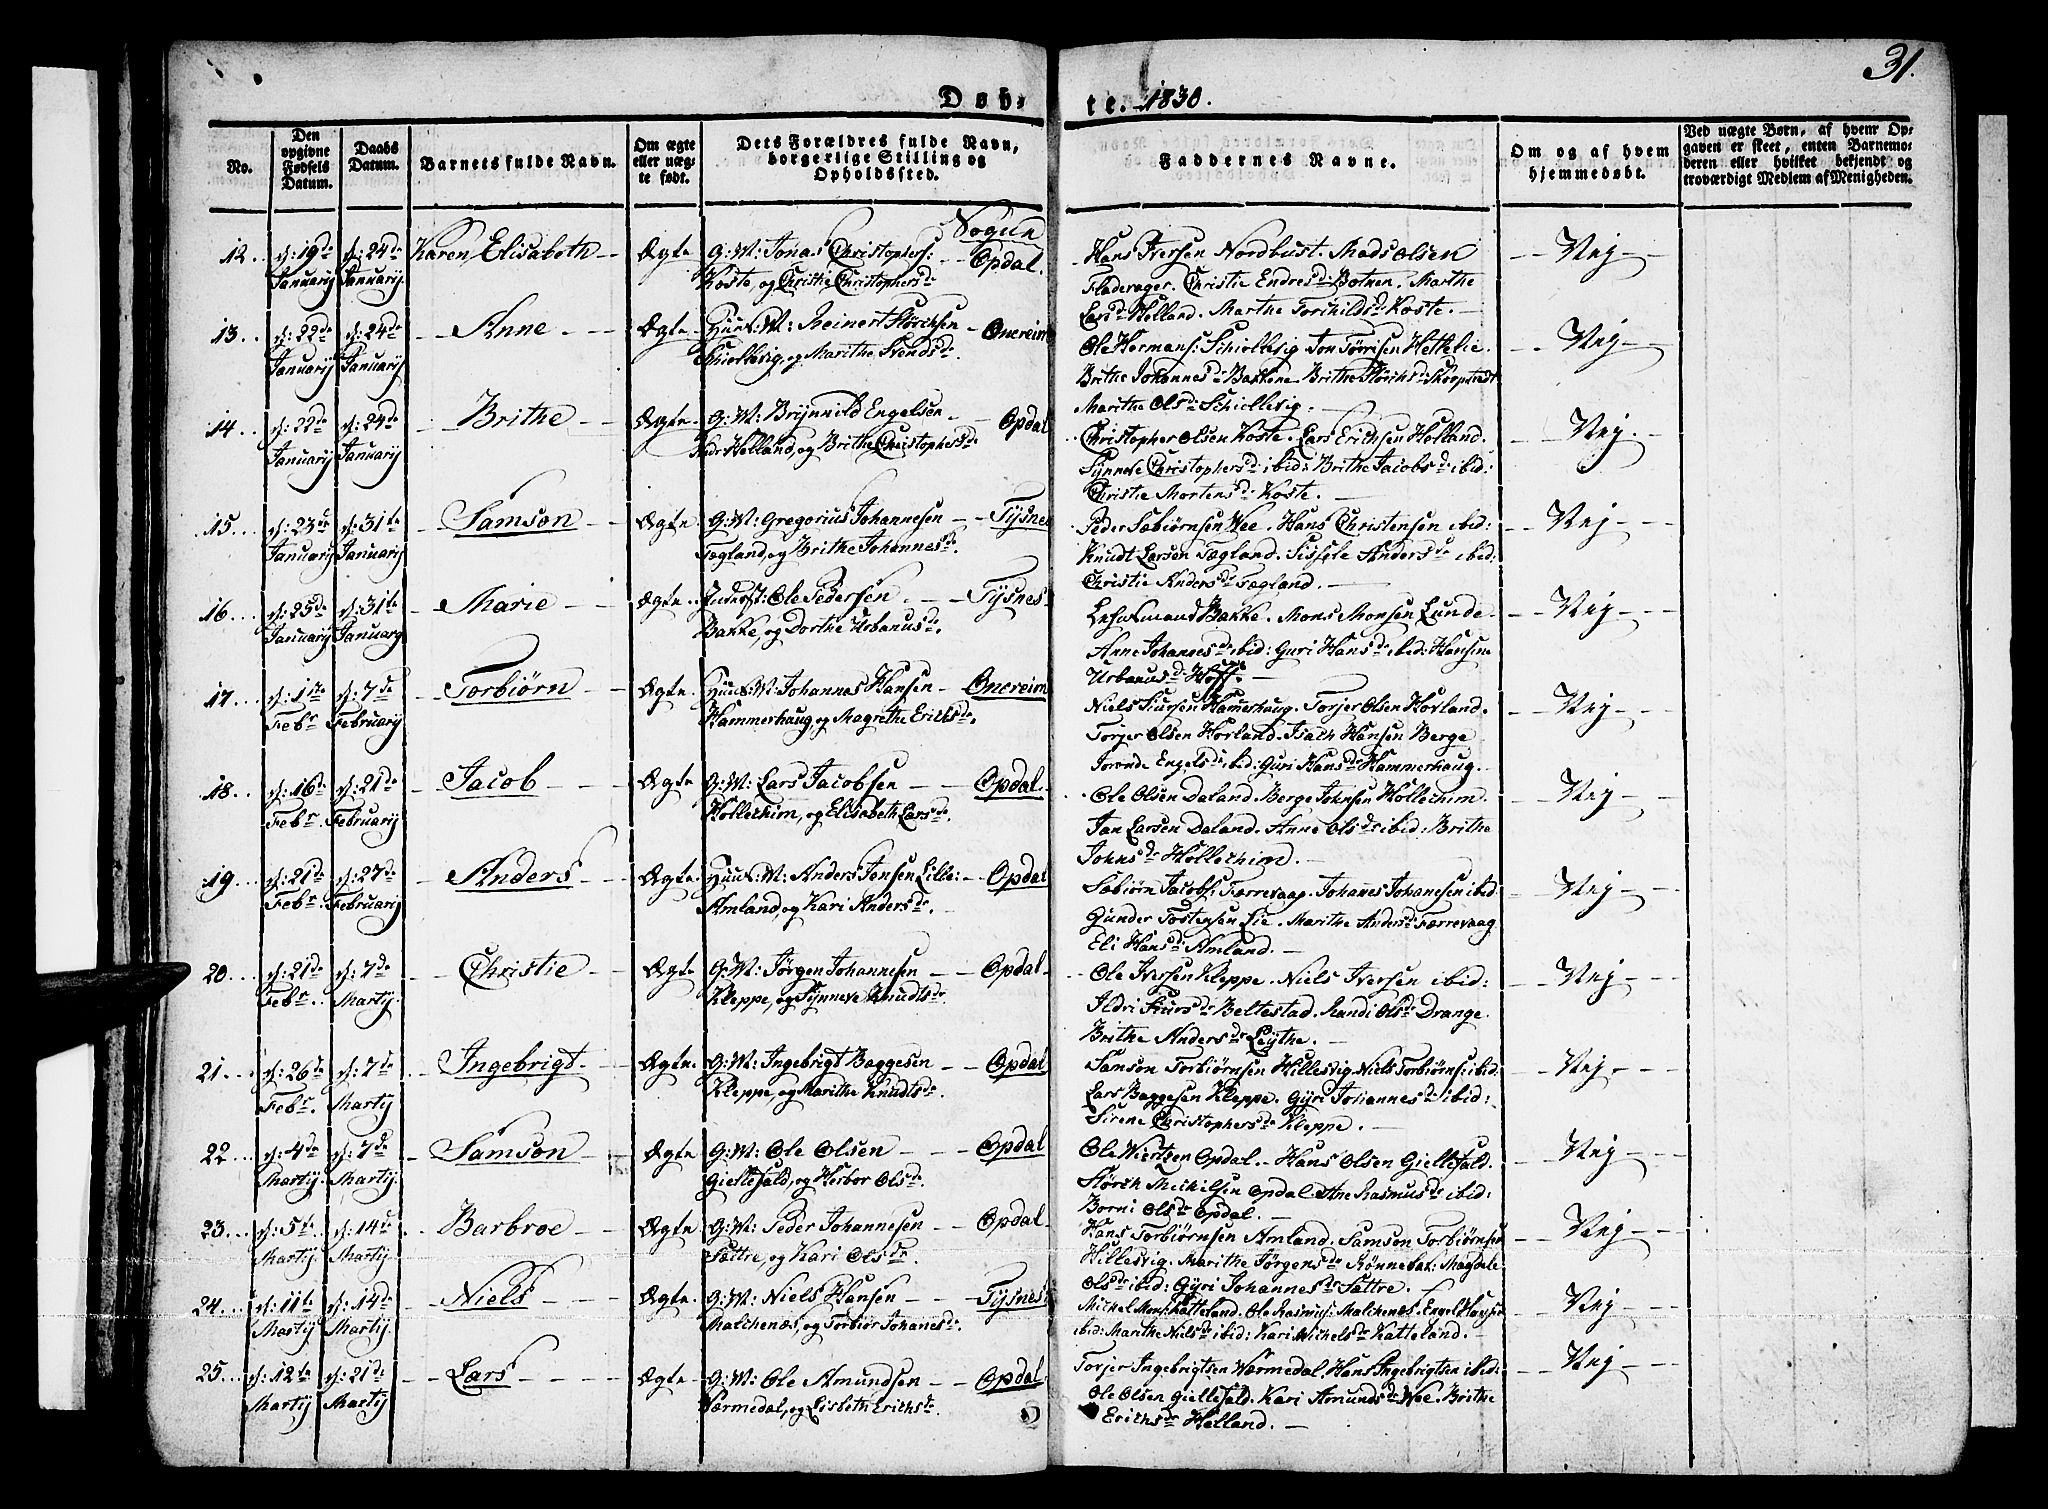 31.
Døb- te. 1830.
No.
Den opgivne Fødsels Datum.
Daabs Datum.
Barnets fulde Navn.
Om ægte eller uægte født.
Dets Forældres fulde Navn, borgerlige Stilling og Opholdssted.
Faddernes Navne.
Om og af hvem hjemmedøbt.
Ved uægte Børn, af hvem Opgaven er skeet, enten Barnemoderen eller hvilket bekjendt og troværdigt Medlem af Menigheden.
Sogun
12. d: 19de Januarij d: 24de Januarij Karen Elisabeth Ægte G: M: Jonas Christophers: Opdal.
Koste, og Christie Christophersde
Hans Iversen Nordbust. Mads Olsen Nej
Fladerager. Christie Endresd: Botnen. Marthe
Larsd: Helland. Marthe Torkildsd: Koste.
13. d: 22de Januarij d: 24de Januarij Anne Ægte Huus: M: Reinert Størchsen Onereim
Skiellevig, og Marithe Svendsde.
Ole Hermans: Schiellevig. Jon Tørrisen Hettelie. Nej
Brithe Johannesde Bakkene. Brithe Størchsde
Marithe Olsde Schiellevig.
14. d: 22de Januarij d: 24de Januarij Brithe Ægte G: M: Brynnild Engelsen Opdal
Helland, og Brithe Christophersde
Christopher Olsen Koste. Lars Erichsen Helland. Nej.
Synneve Christophersde ibid: Brithe Jacobsde ibid:
Christie Mortensde Koste.
15. d: 23de Januarij d: 31te Januarij Samson Ægte G: M: Gregorius Johannesen Tysnes
Tegland, og Brithe Johannesde.
Peder Sæbiørnsen Wee. Hans Christensen ibid: Nej
Knudt Larsen Tegland. Andersde ibid:
Christie Andersde Tegland.
16. d: 25de Januarij d: 31te Januarij Marie Ægte Ole Pedersen Tysnes
Bakke, og Dorthe Urbanusde.
Bakke. Mons Monsen Lunde Nej
Anne Johannesde ibid: Guri Hansde ibid:
Urbanusde Hoff.
17. d: 1ste Febr. d: 7de Februarij Torbiørn Ægte Huus: M: Johannes Hansen Onereim
Hammerhaug, og Magrethe Erichsde.
Niels Hamerhaug. Torjer Olsen Hovland. Nej
Torjer Olsen Hovland. Isach Hansen Berge
Engelsde ibid: Guri Hansde Hammerhaug.
18. d: 16de Febr. d: 21de Februarij Jacob Ægte G: M: Lars Jacobsen Opdal.
Hollechim, og Elisabeth Larsde.
Ole Olsen Daland. Berge Johnsen Hollechim. Nej
Jan Larsen Daland. Anne Olsde ibid: Brithe
Johnsde Hollechim.
19. d: 21de Febr. d: 27de Februarij Anders Ægte Huus: M: Anders Jensen Lille: Opdal
Amland, og Kari Andersde.
Sæbiørn Jacobs: Færrevaag. Johanes Johanesen ibid Nej
Gunder Tostensen Lie. Marithe Andersde Færrevaag
Eli Hansde Amland.
20. d: 21de Febr. d: 7de Martij Christie Ægte G: M: Jørgen Johannesen Opdal
Kleppe, og Synneve Knudtsde.
Ole Iversen Kleppe. Niels Iversen ibid: Nej
Ildri Siursde Beltestad. Randi Olsde Drange.
Brithe Andersde Leythe.
21. d: 26de Febr. d: 7de Martij Ingebrigt Ægte G: M: Ingebrigt Baggesen Opdal
Kleppe, og Marithe Knudtsde.
Samson Torbiørnsen Hillesvig. Niels Torbiørns: ibid: Nej
Lars Baggesen Kleppe. Gyri Johannesde ibid:
Sirene Christophersde Kleppe.
22. d: 4de Martij d: 7de Martij Samson Ægte G: M: Ole Olsen Opdal
Giellefald, og Herbor Olsde.
Ole Wiertsen Opdal. Hans Olsen Giellefald. Nej
Størch Michilsen Opdal. Ane Rasmusde ibid:
Borni Olsde Opdal.
23. d: 5te Martij d: 14de Martij Barbroe Ægte G: M: Peder Johannesen Opdal
Sættre, og Kari Olsde.
Hans Torbiørnsen Amland. Samson Torbiørnsen Nej
Hillesvig. Marithe Jørgensde Rønnebak: Magdele
Olsde ibid: Gyri Johannesde Sættre.
24. d: 11te Martij d: 14de Martij Niels Ægte G: M: Niels Hansen Tysnes
Malchenæs, og Torbior Johanesde.
Michel Mons: Katteland. Ole Rasmus: Malchenæs. Engel Hansen Nej
ibid: Marithe Nielsde ibid: Kari Michelsde Katteland.
25. d: 12te Martij d: 21de Martij Lars Ægte G: M: Ole Amundsen Opdal
Værmedal, og Lisbeth Erichsde.
Torjer Ingebrigtsen Wærmedal. Hans Ingebrigtsen ibid: Nej
Ole Olsen Giellefald. Kari Amundsde Wee. Brithe
Erichsde Helland.